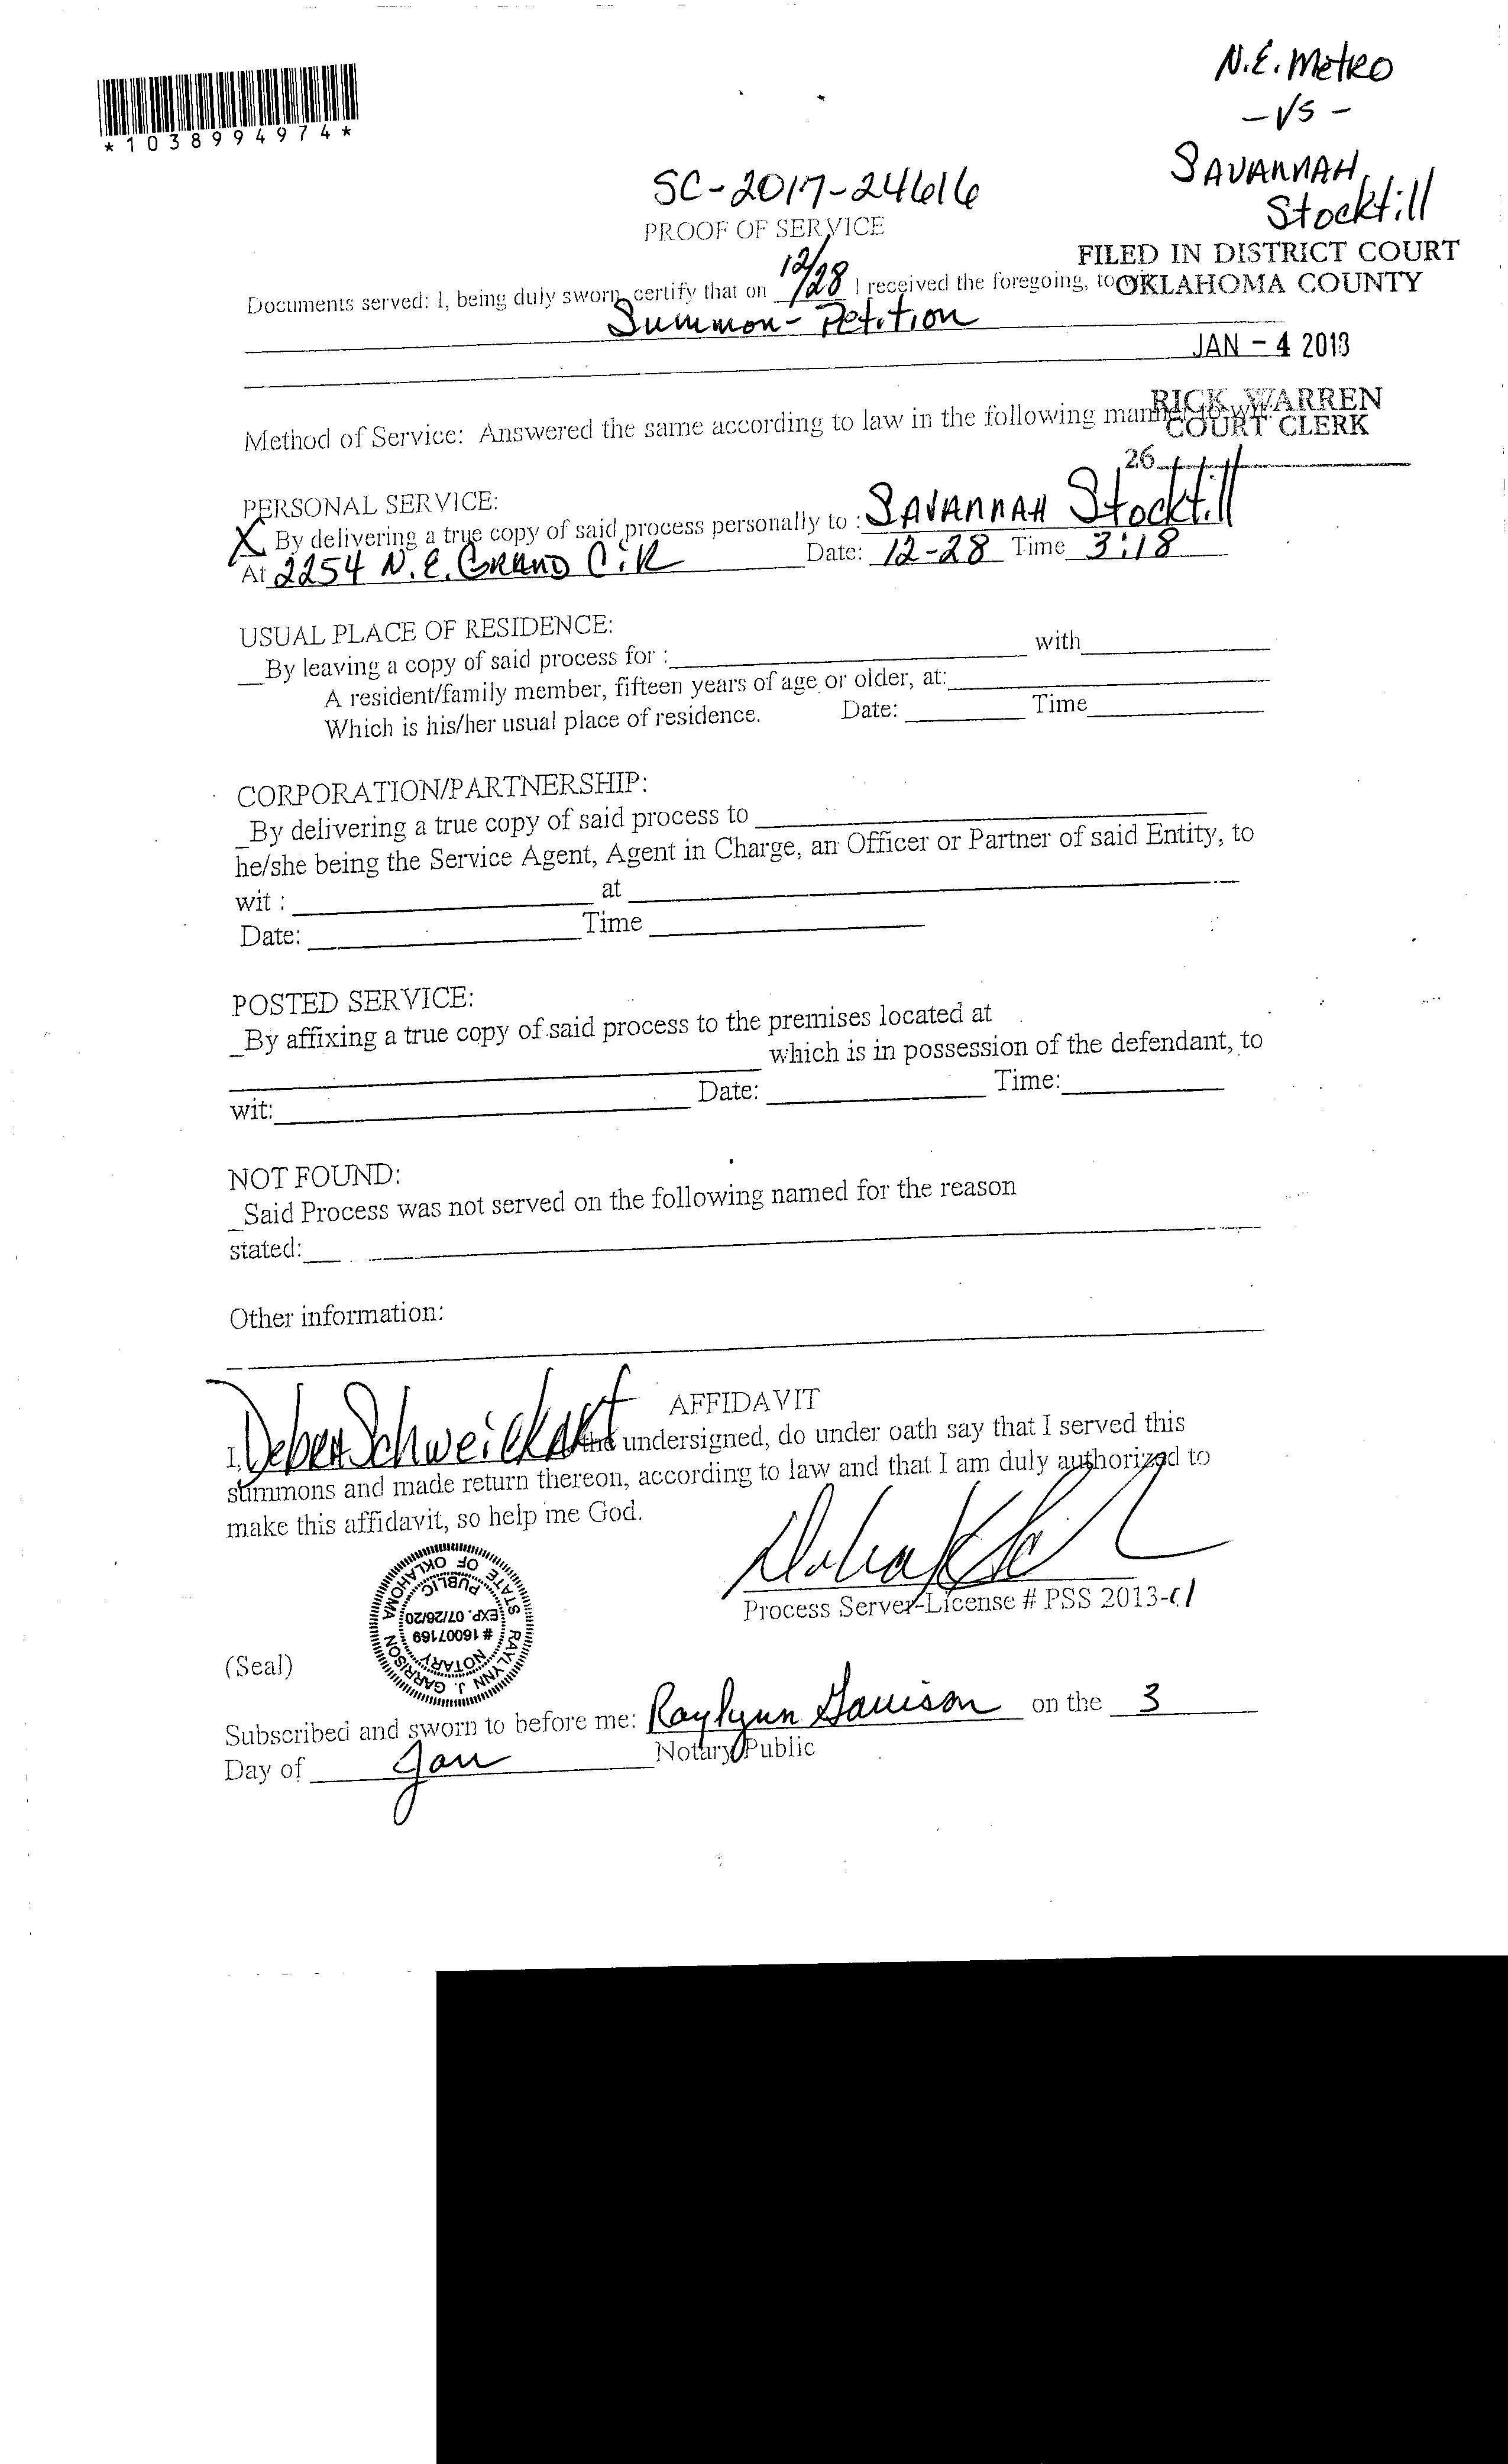 N.E. Metro
-VS-
SAVANNAH
Stocktill
*1038994974*
SC-2017-24616
PROOF OF SERVICE
FILED IN DISTRICT COURT
OKLAHOMA COUNTY
Documents served: I, being duly sworn, certify that on 12/28 I received the foregoing, to
Summon - Petition
JAN - 4 2018
RICK WARREN
COURT CLERK
Method of Service: Answered the same according to law in the following manner to wit:
26
PERSONAL SERVICE:
X By delivering a true copy of said process personally to : SAVANNAH Stocktill
At 2254 N.E. GRAND CiR Date: 12-28 Time 3:18
USUAL PLACE OF RESIDENCE:
_By leaving a copy of said process for : with
A resident/family member, fifteen years of age or older, at:
Which is his/her usual place of residence. Date: Time
CORPORATION/PARTNERSHIP:
_By delivering a true copy of said process to
he/she being the Service Agent, Agent in Charge, an Officer or Partner of said Entity, to
wit : at
Date: Time
POSTED SERVICE:
_By affixing a true copy of said process to the premises located at
which is in possession of the defendant, to
wit: Date: Time:
NOT FOUND:
_Said Process was not served on the following named for the reason
stated:
Other information:
AFFIDAVIT
I, Debra Schweickart the undersigned, do under oath say that I served this
summons and made return thereon, according to law and that I am duly authorized to
make this affidavit, so help me God.
Process Server-License # PSS 2013-61
RAYLYNN J. GARRISON
NOTARY
# 16007169
EXP. 07/26/20
PUBLIC
STATE OF OKLAHOMA
(Seal)
Subscribed and sworn to before me: Raylynn Garrison on the 3
Day of Jan Notary Public